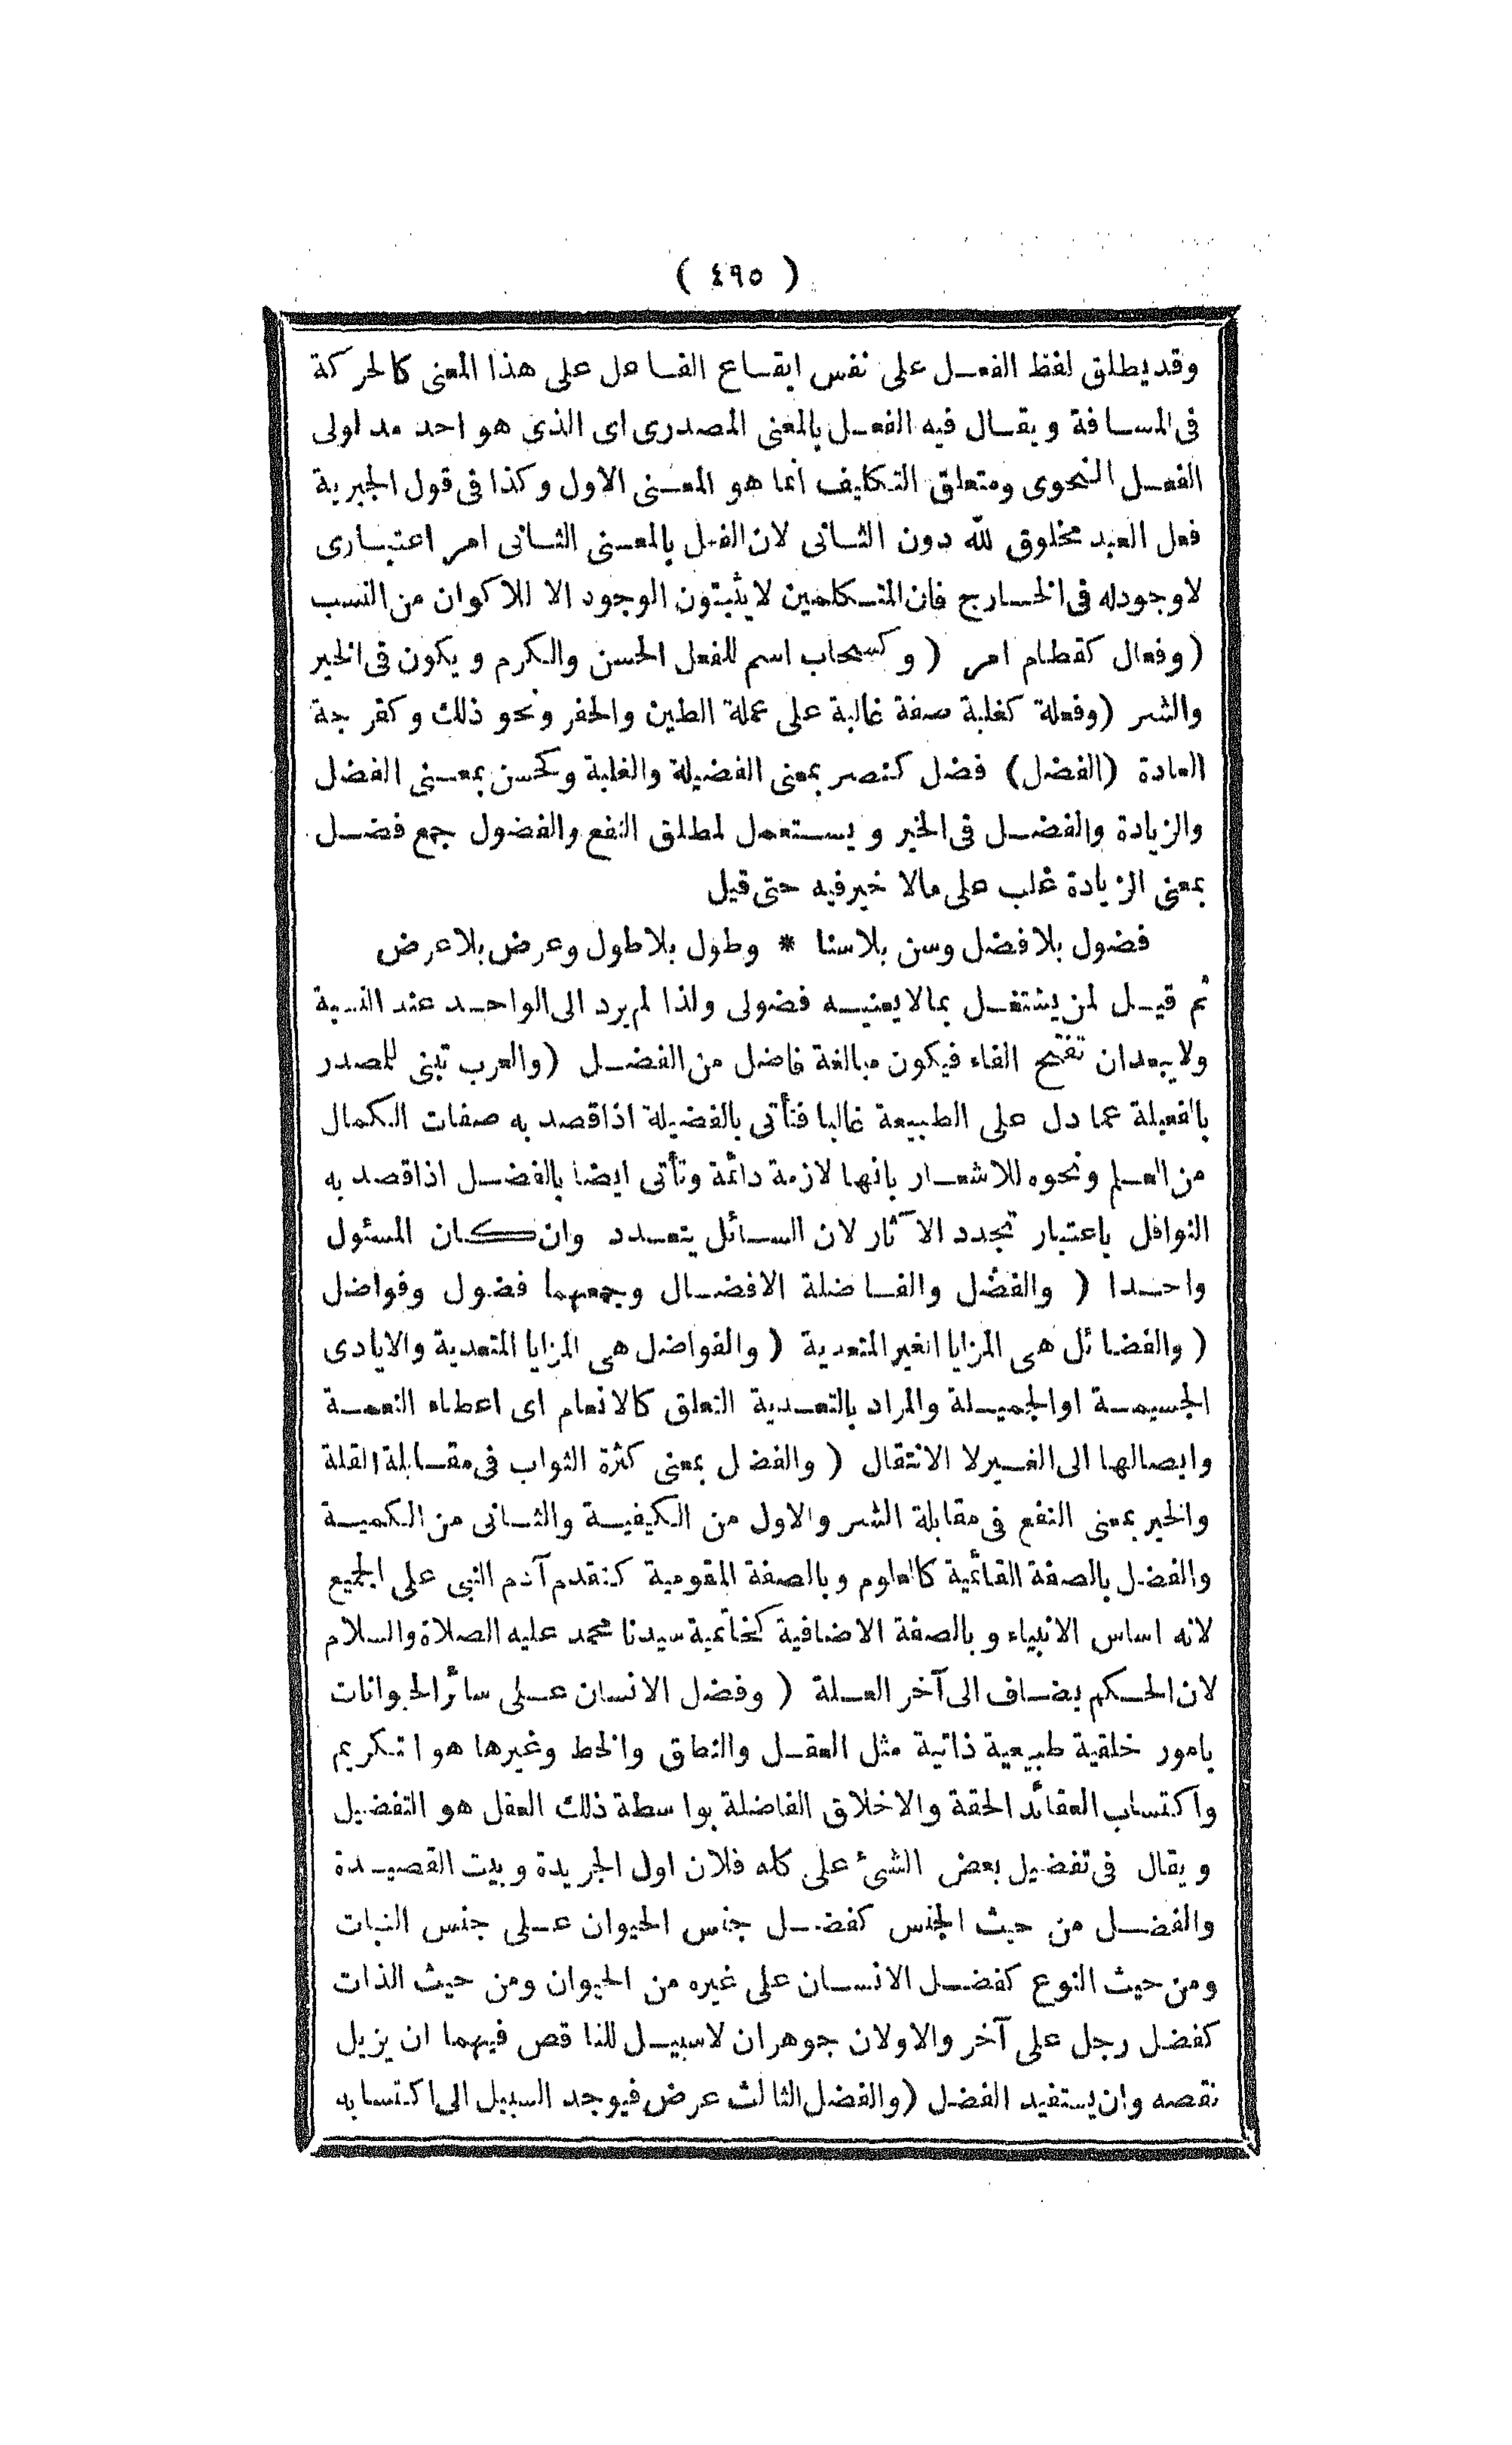 ( ٤٩٥ )
وقد يطلق لفظ الفعل على نفس ايقاع الفاعل على هذا المعنى كالحركة
فى المسافة ويقال فيه الفعل بالمعنى المصدرى اى الذى هو احد مدلولى
الفعل النحوى ومتعلق التكليف انما هو المعنى الاول وكذا فى قول الجبرية
فعل العبد مخلوق لله دون الثانى لان الفعل بالمعنى الثانى امر اعتبارى
لاوجودله فى الخارج فان المتكلمين لايثبتون الوجود الا للاكوان من النسب
( وفعال كقطام امر ( وكسحاب اسم للفعل الحسن والكرم ويكون فى الخير
والشر ( وفعلة كغلبة صفة غالبة على عملة الطين والحفر ونحو ذلك وكفرحة
العادة (الفضل) فضل كنصر بمعنى الفضيلة والغلبة وكحسن بمعنى الفضل
والزيادة والفضل فى الخير ويستعمل لمطلق النفع والفضول جمع فضل
بمعنى الزيادة غلب على مالا خير فيه حتى قيل
فضول بلا فضل وسن بلاسنا * وطول بلاطول وعرض بلاعرض
ثم قيل لمن يشتغل بمالايعنيه فضولى ولذا لم يرد الى الواحد عند النسبة
ولايبعدان تفتح الفاء فيكون مبالغة فاضل من الفضل ( والعرب تبنى للصدر
بالفعيلة عما دل على الطبيعة غالبا فتأتى بالفضيلة اذاقصد به صفات الكمال
من العلم ونحوه للاشعار بانها لازمة دائمة وتأتى ايضا بالفضل اذاقصد به
النوافل باعتبار تجدد الآثار لان السائل يتعدد وان كان المسئول
واحدا ( والفضل والفاضلة الافضال وجمعهما فضول وفواضل
( والفضائل هى المزايا الغير المتعدية ( والفواضل هى المزايا المتعدية والايادى
الجسيمة اوالجميلة والمراد بالتعدية التعلق كالانعام اى اعطاء النعمة
وايصالها الى الغير لا الانتقال ( والفضل بمعنى كثرة الثواب فى مقابلة القلة
والخير بمعنى النفع فى مقابلة الشر والاول من الكيفية والثانى من الكمية
والفضل بالصفة القائمية كالعلوم وبالصفة المقومية كتقدم آدم النبى على الجميع
لانه اساس الانبياء وبالصفة الاضافية كخاتمية سيدنا محمد عليه الصلاة والسلام
لان الحكم يضاف الى آخر العلة ( وفضل الانسان على سائر الحيوانات
بامور خلقية طبيعية ذاتية مثل العقل والنطق والخط وغيرها هو التكريم
واكتساب العقائد الحقة والاخلاق الفاضلة بواسطة ذلك العقل هو التفضيل
ويقال فى تفضيل بعض الشئ على كله فلان اول الجريدة وبيت القصيدة
والفضل من حيث الجنس كفضل جنس الحيوان على جنس النبات
ومن حيث النوع كفضل الانسان على غيره من الحيوان ومن حيث الذات
كفضل رجل على آخر والاولان جوهران لاسبيل للناقص فيهما ان يزيل
نقصه وان يستفيد الفضل ( والفضل الثالث عرض فيوجد السبيل الى اكتسابه